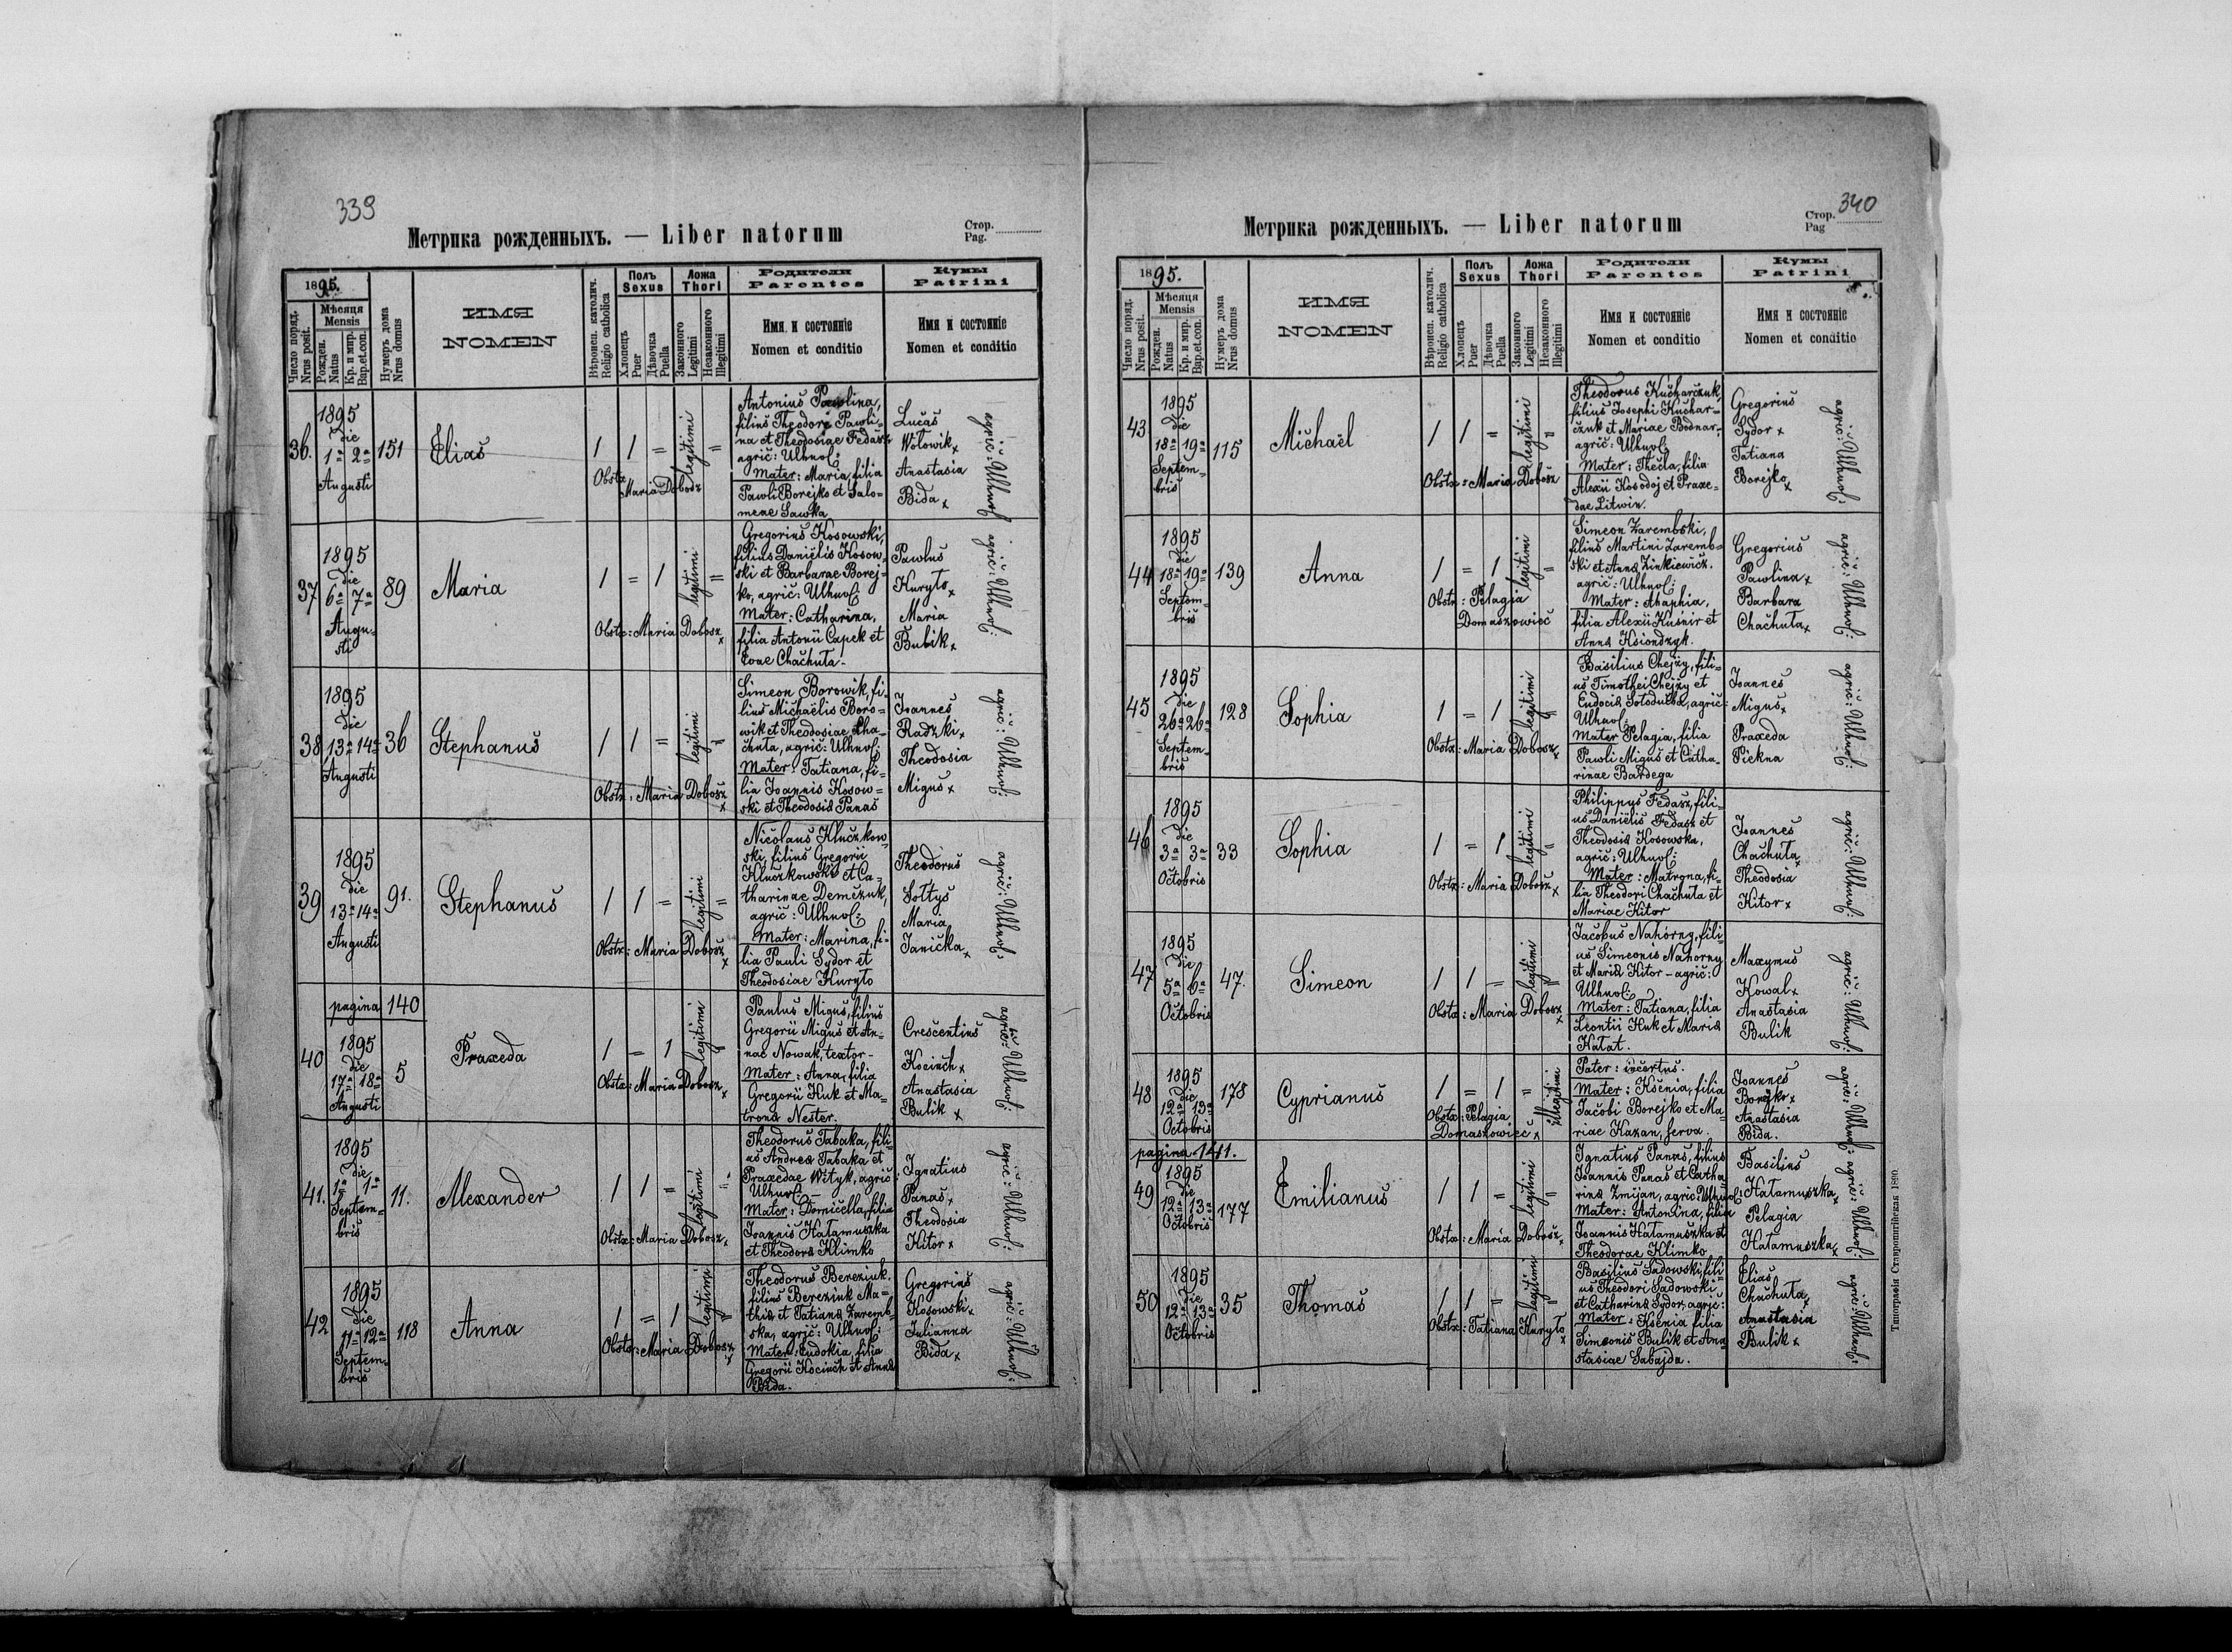 339
Метрика рожденныхъ. — Liber natorum
Стор.
Pag.
1895.
Число поряд.
Nrus posit.
Мѣсяця
Mensis
Рожден.
Natus
Кр. и мир.
Bap.et.con.
Нумеръ дома
Nrus domus
ИМЯ
NOMEN
Вѣроисп. католич.
Religio catholica
Полъ
Sexus
Хлопецъ
Puer
Дѣвочка
Puella
Ложа
Thori
Законного
Legitimi
Незаконного
Illegitimi
Родители
Parentes
Имя и состояніе
Nomen et conditio
Кумы
Patrini
Имя и состояніе
Nomen et conditio
36.
1895
die
1ª 2ª
Augusti
151
Elias
1 1 =
legitimi
=
Obstx
Maria Dobosz
Antonius Pawlina,
filius Theodori Pawli=
na et Theodosiae Fedasz
agric: Uhnol:
Mater: Maria, filia
Pawli Borejko et Salo=
meae Sawka
Lucas
Wołowik x
Anastasia
Bida x
agric: Uhnol:
37
1895
die
6ª 7ª
Augu=
sti
89
Maria
1 = 1
legitimi
=
Obstx: Maria Dobosz x
Gregorius Kosowski,
filius Daniëlis Kosow=
ski et Barbarae Borej=
ko, agric: Uhnol:
Mater: Catharina,
filia Antonii Capek et
Evae Chachuta-
Pawlus
Kuryło x
Maria
Bubik x
agric: Uhnol:
38
1895
die
13ª 14ª
Augusti
36
Stephanus
1 1 =
legitimi
=
Obstx: Maria Dobosz x
Simeon Borowik, fi=
lius Michaëlis Boro=
wik et Theodosiae Cha=
chuta, agric: Uhnol:
Mater: Tatiana, fi=
lia Joannis Kosow=
ski et Theodosia Panas
Joannes
Radzki x
Theodosia
Migus x
agric: Uhnol:
39
1895
die
13ª 14ª
Augusti
91.
Stephanus
1 1 =
legitimi
=
Obstx: Maria Dobosz x
Nicolaus Kluczkow
ski, filius Gregorii
Kluczkowski et Ca=
tharinae Demczuk,
agric: Uhnol:
Mater: Marina, fi=
lia Pauli Sydor et
Theodosiae Kuryło
Theodorus
Sołtys
Maria
Janicka x
agric: Uhnol:
pagina 140
40
1895
die
17ª 18ª
Augusti
5
Praxeda
1 = 1
legitimi
=
Obstx: Maria Dobosz x
Paulus Migus, filius
Gregorii Migus et An=
nae Nowak, textor-
Mater: Anna, filia
Gregorii Kuk et Ma=
trona Nester.
Crescentius
Kocinch x
Anastasia
Bulik x
agric: Uhnol:
41.
1895
die
1ª 1ª
Septem=
bris
11.
Alexander
1 1 =
legitimi
=
Obstx: Maria Dobosz x
Theodorus Tabaka, fili=
us Andrea Tabaka et
Praxedae Wityk, agric:
Uhnol: -
Mater: Domicella, filia
Joannis Hałamuszka
et Theodora Klimko
Ignatius
Panas x
Theodosia
Kitor x
agric: Uhnol:
42
1895
die
11ª 12ª
Septem=
bris
118
Anna
1 = 1
legitimi
=
Obstx: Maria Dobosz x
Theodorus Bereziuk.
filius Bereziuk Ma=
thia et Tatiana Zaremb=
ska, agric: Uhnol:
Mater: Eudokia, filia
Gregorii Kocinch et Anna
Bida.
Gregorius
Kosowski x
Julianna
Bida x
agric: Uhnol:
340
Метрика рожденныхъ. — Liber natorum
Стор.
Pag
1895.
Число поряд.
Nrus posit.
Мѣсяця
Mensis
Рожден.
Natus
Кр. и мир.
Bap.et.con.
Нумеръ дома
Nrus domus
ИМЯ
NOMEN
Вѣроисп. католич.
Religio catholica
Полъ
Sexus
Хлопецъ
Puer
Дѣвочка
Puella
Ложа
Thori
Законного
Legitimi
Незаконного
Illegitimi
Родители
Parentes
Имя и состояніе
Nomen et conditio
Кумы
Patrini
Имя и состояніе
Nomen et conditio
43
1895
die
18ª 19ª
Septem=
bris
115
Michaël
1 1 =
legitimi
=
Obstx: Maria Dobosz
Theodorus Kucharczuk,
filius Josephi Kuchar=
czuk et Mariae Bodnar,
agric: Uhnol:
Mater: Thecla, filia
Alexii Kosodoj et Praxe=
dae Litwin.
Gregorius
Sydor x
Tatiana
Borejko x
agric: Uhnol:
44
1895
die
18ª 19ª
Septem=
bris
139
Anna
1 = 1
legitimi
=
Obstx: Pelagia
Domaszowiec
Simeon Zarembski,
filius Martini Zaremb=
ski et Anna Zinkiewicz.
agric: Uhnol:
Mater: Ahaphia,
filia Alexii Kusnir et
Anna Ksiondzyk.
Gregorius
Pawlina x
Barbara
Chachuta x
agric: Uhnol:
45
1895
die
26ª 26ª
Septem=
bris
128
Sophia
1 = 1
legitimi
=
Obstx: Maria Dobosz x
Basilius Chejzy, fili=
us Timothei Chejzy et
Eudocia Sołoducha, agric:
Uhnol:
Mater Pelagia, filia
Pawli Migus et Catha=
rinae Bardega
Joannes
Migus x
Praxeda
Piekna
agric: Uhnol:
46
1895
die
3ª 3ª
Octobris
33
Sophia
1 = 1
legitimi
=
Obstx: Maria Dobosz x
Philippus Fedasz, fili=
us Daniëlis Fedasz et
Theodosia Kosowska,
agric: Uhnol:
Mater: Matrona, fi=
lia Theodori Chachuta et
Mariae Kitor
Joannes
Chachuta x
Theodosia
Kitor x
agric: Uhnol:
47
1895
die
5ª 6ª
Octobris
47.
Simeon
1 1 =
legitimi
=
Obstx: Maria Dobosz x
Jacobus Nahorny, fili=
us Simeonis Nahorny
et Maria Kitor - agric:
Uhnol:
Mater: Tatiana, filia
Leontii Huk et Maria
Hałat.
Maxymus
Kowal x
Anastasia
Bulik
agric: Uhnol:
48
1895
die
12ª 13ª
Octobris
178
Cyprianus
1 = 1 =
illegitimi
Obstx: Pelagia
Domaszowiec x
Pater: incertus.
Mater: Ksenia, filia
Jacobi Borejko et Ma=
riae Kazan, serva.
Joannes
Borejko x
Anastasia
Bida.
agric: Uhnol:
pagina 141.
49
1895
die
12ª 13ª
Octobris
177
Emilianus
1 1 =
legitimi
=
Obstx: Maria Dobosz x
Ignatius Panas, filius
Joannis Panas et Catha=
rina Zmijan, agric: Uhnol:
Mater: Antonina, filia
Joannis Hałamuszka et
Theodorae Klimko
Basilius
Hałamuszka x
Pelagia
Hałamuszka x
agric: Uhnol:
50
1895
die
12ª 13ª
Octobris
35
Thomas
1 1 =
legitimi
=
Obstx: Tatiana Kuryło x
Basilius Sadowski, fili=
us Theodori Sadowski
et Catharina Sydor, agric:
Mater: Ksenia filia
Simeonis Bulik et Ana
stasiae Sabajda.
Elias
Chachuta x
Anastasia
Bulik x
agric: Uhnol:
Типографія Ставропигійская 1890.